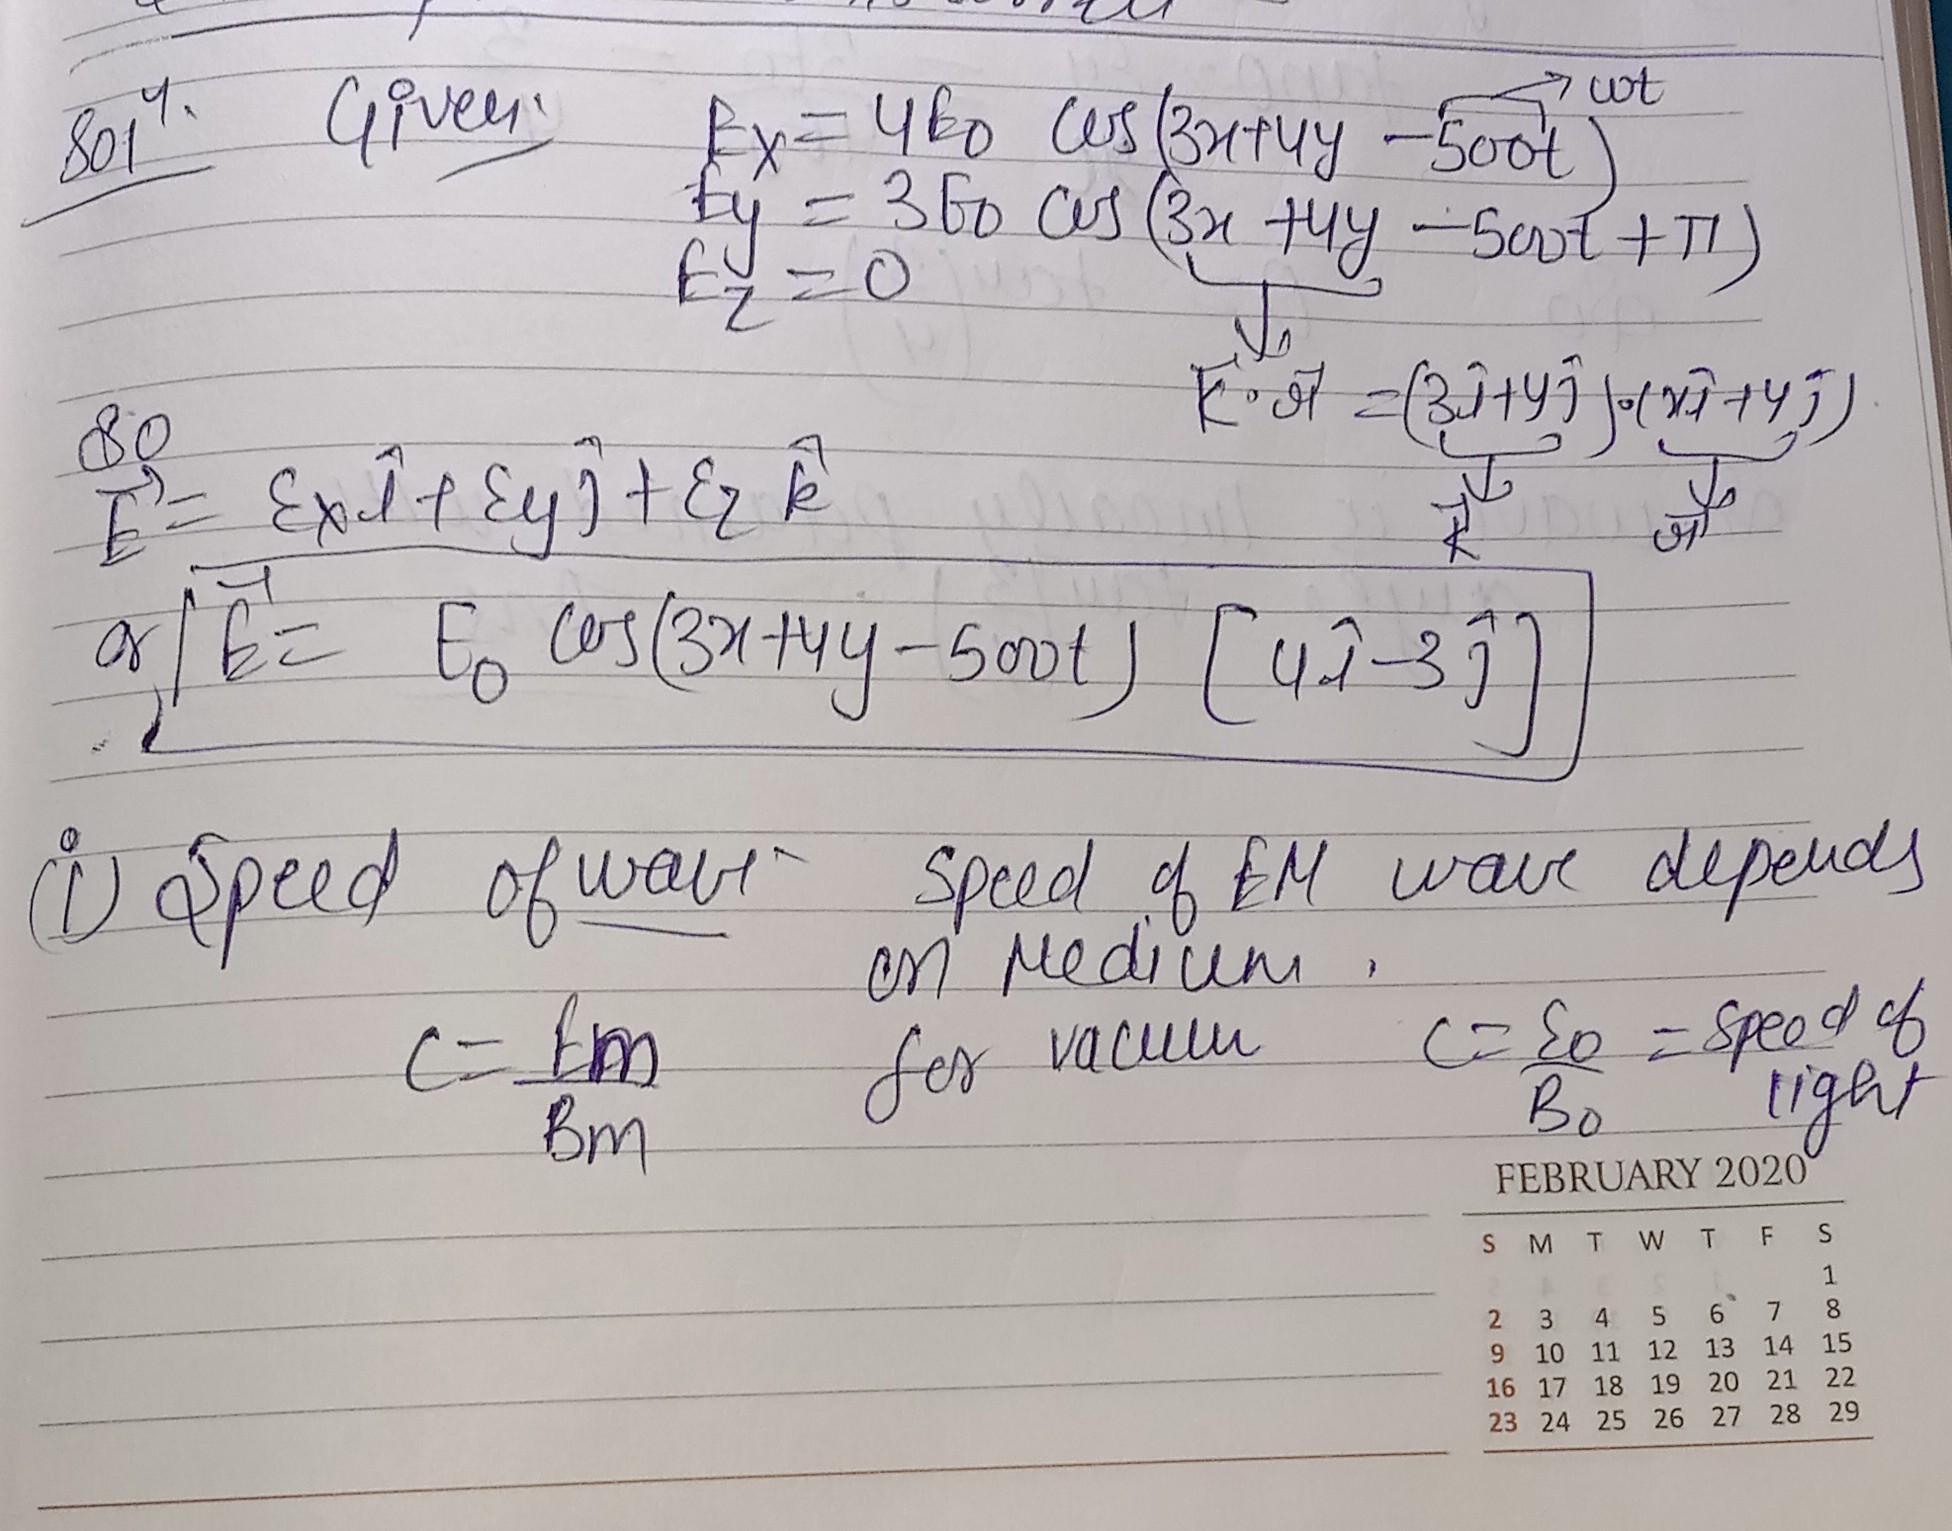 Solⁿ. Given:
Ex = 4E0 cos(3x+4y −500t) → ωt
Ey = 3E0 cos(3x +4y −500t + π)
Ez = 0
k⃗·r⃗ = (3î+4ĵ)·(xî+yĵ)
k⃗ r⃗
So
E⃗ = Exî + Eyĵ + Ez k̂
or E⃗ = E0 cos(3x+4y−500t) [4î−3ĵ]
(i) Speed of wave- Speed of EM wave depends
on Medium.
C = Em/Bm for vacuum C = E0/B0 = Speed of
light
FEBRUARY 2020
S M T W T F S
1
2 3 4 5 6 7 8
9 10 11 12 13 14 15
16 17 18 19 20 21 22
23 24 25 26 27 28 29